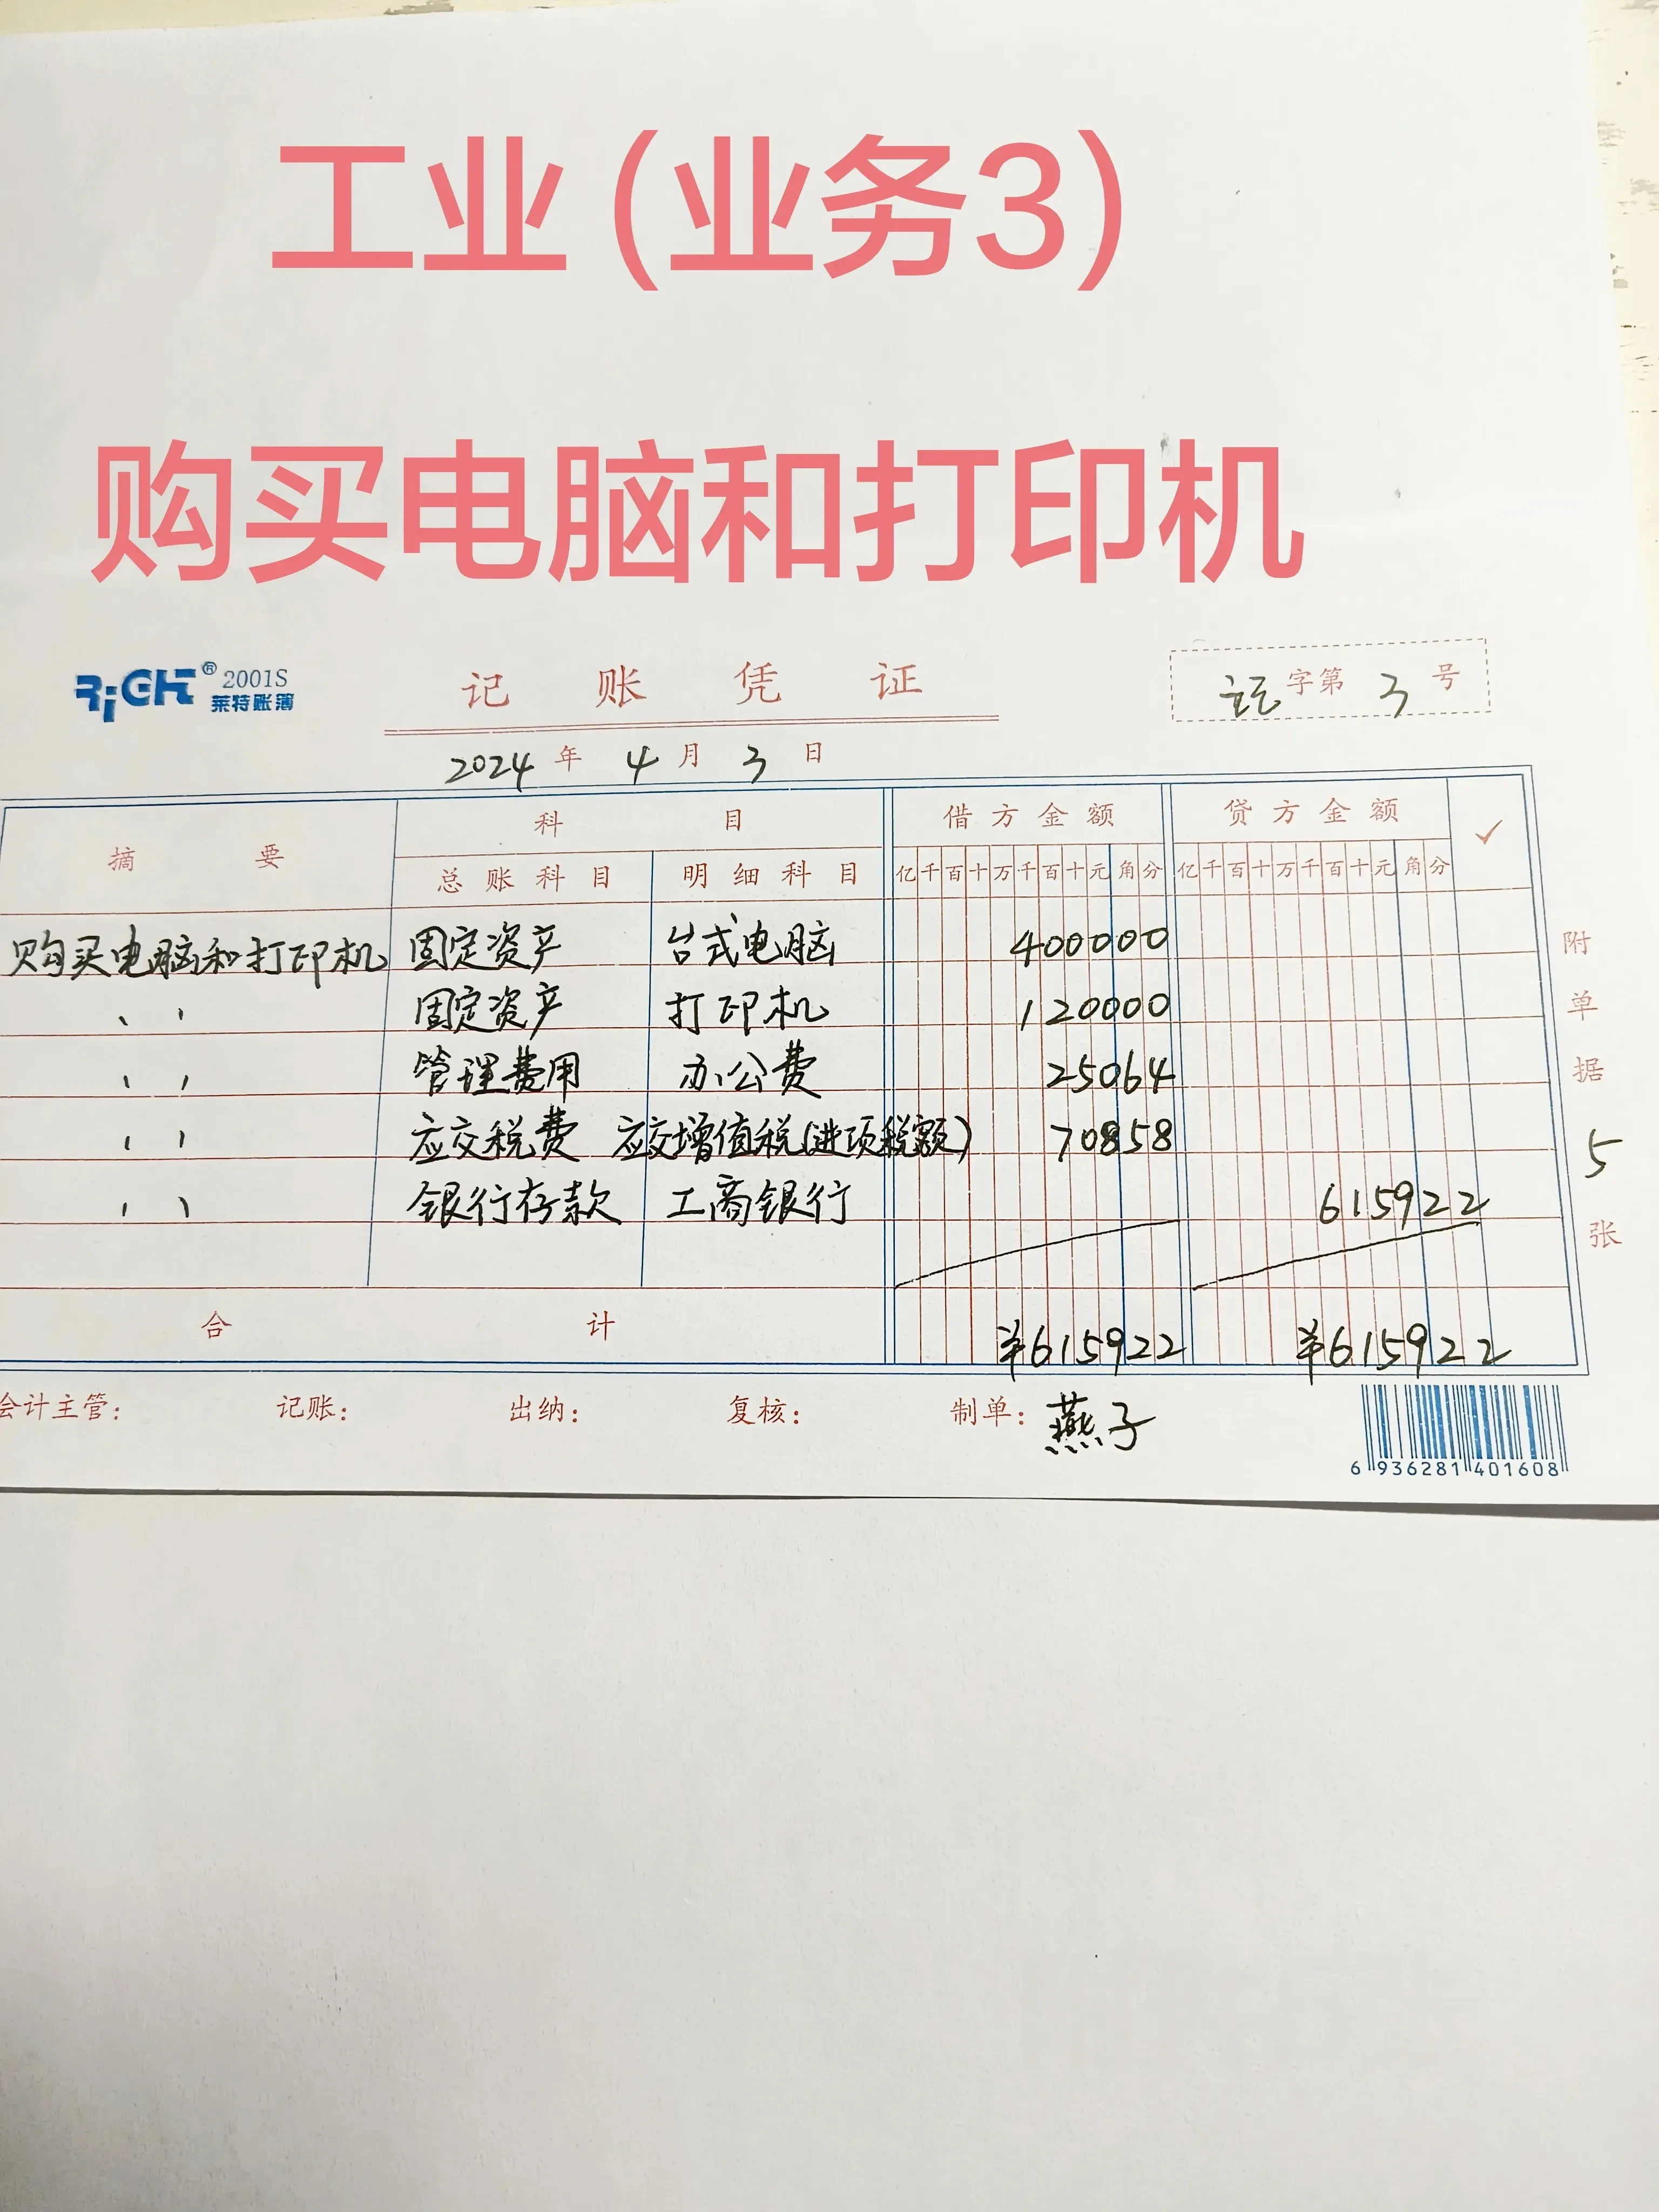 工业(业务3)
购买电脑和打印机
RiGHT® 2001S 莱特账簿
记账凭证
记字第3号
2024年4月3日
摘要 科目 借方金额 贷方金额 ✓
总账科目 明细科目 亿千百十万千百十元角分 亿千百十万千百十元角分
购买电脑和打印机 固定资产 台式电脑 400000
、、 固定资产 打印机 120000
、、 管理费用 办公费 25064
、、 应交税费 应交增值税(进项税额) 70858
、、 银行存款 工商银行 615922
合计 ¥615922 ¥615922
附单据5张
会计主管: 记账: 出纳: 复核: 制单: 燕子
6 936281 401608